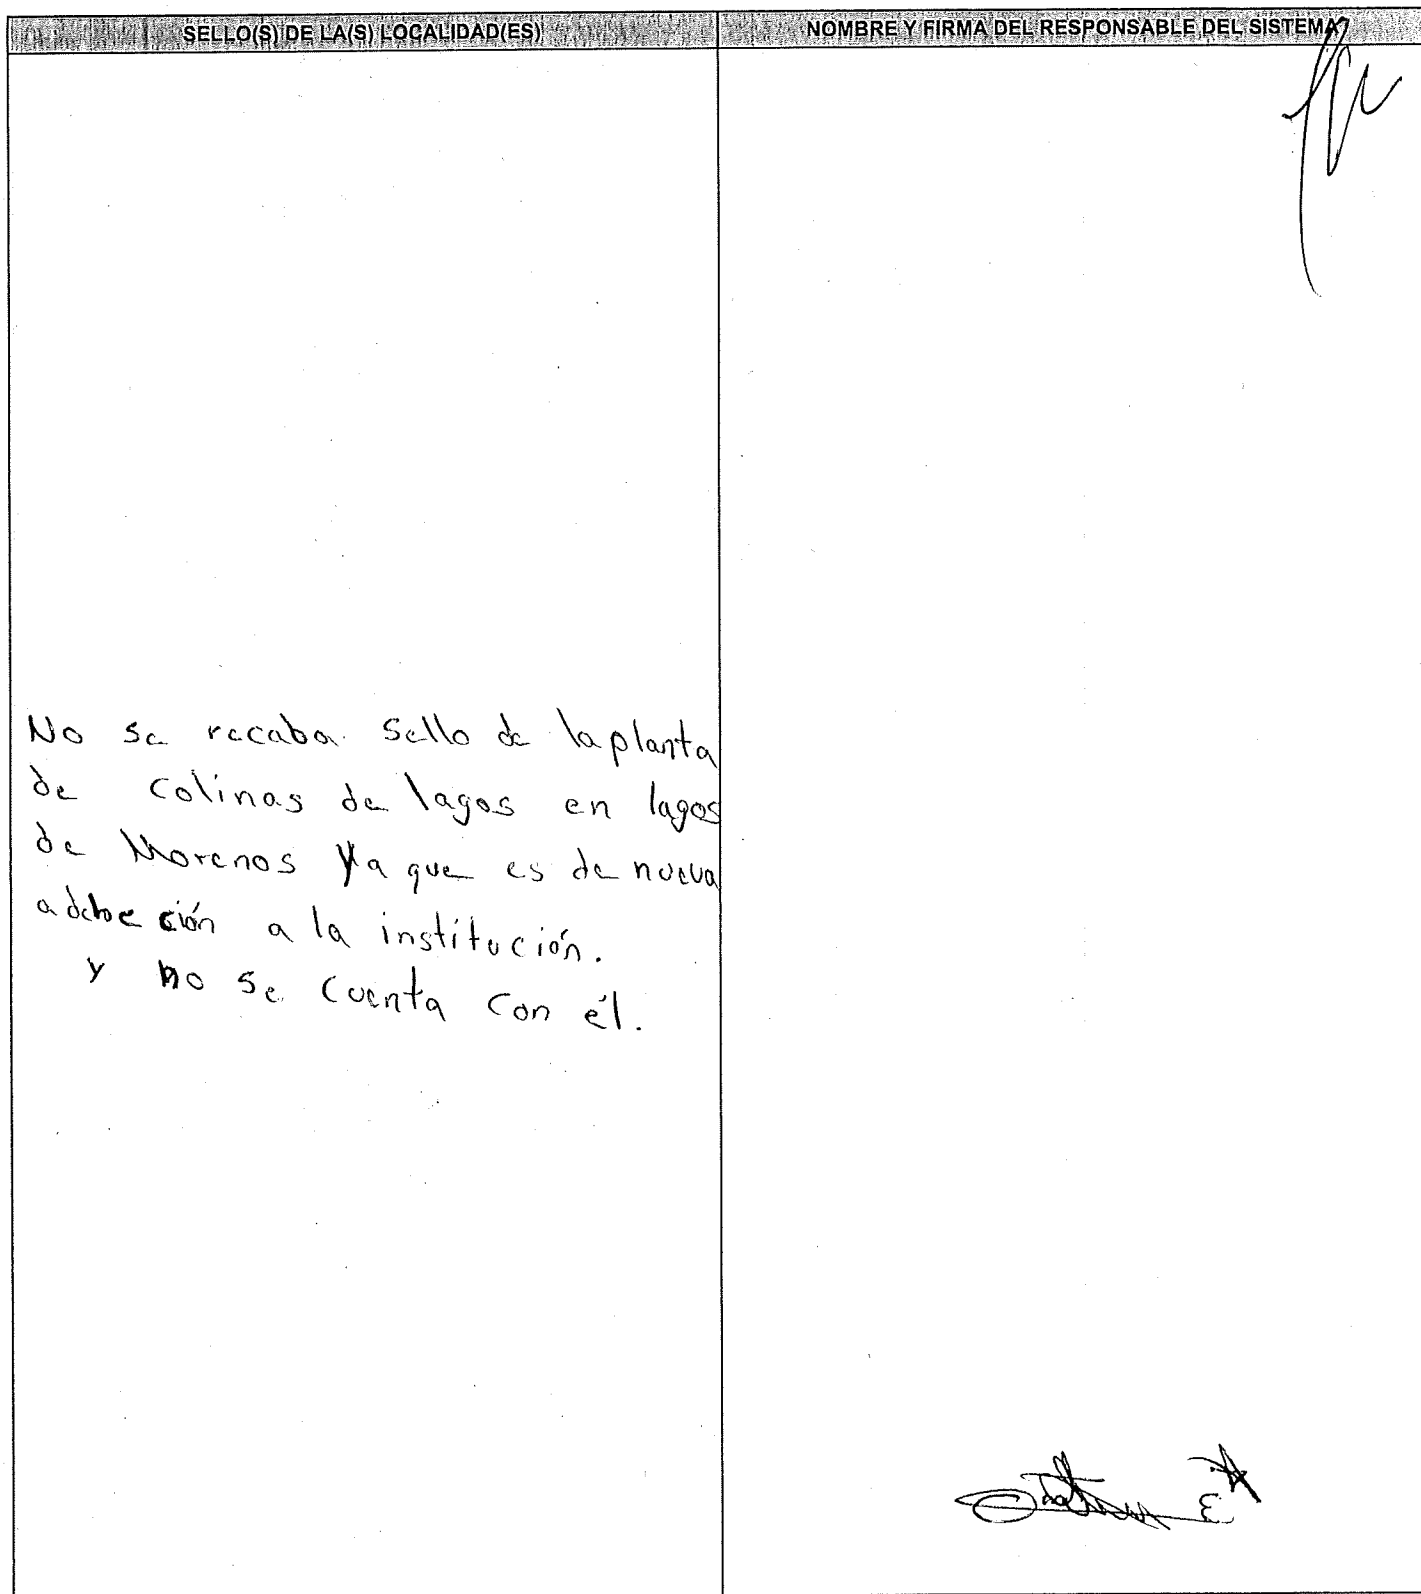 SELLO(S) DE LA(S) LOCALIDAD(ES)
NOMBRE Y FIRMA DEL RESPONSABLE DEL SISTEMA
No se recaba sello de la planta
de Colinas de lagos en lagos
de Morenos Ya que es de nueva
a la institución.
y no se cuenta con él.